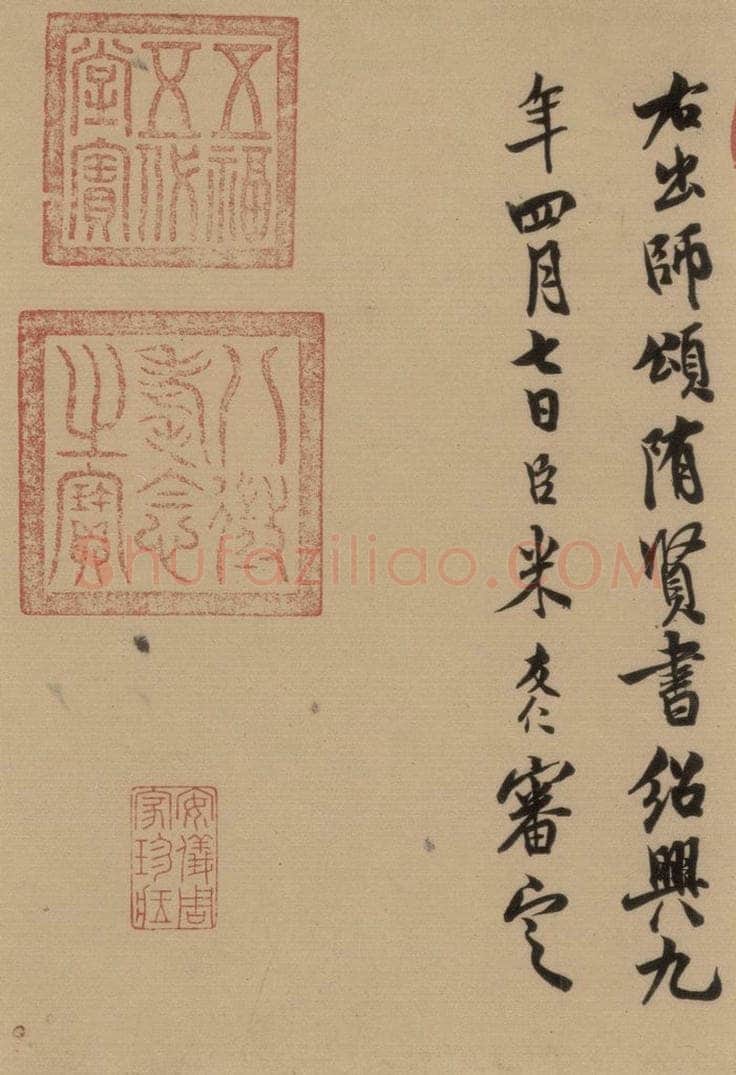 右出師頌隋賢書紹興九
年四月七日臣米友仁審定
五福五代堂寶
八徵耄念之寶
安儀周家珍藏
shufaziliao.COM